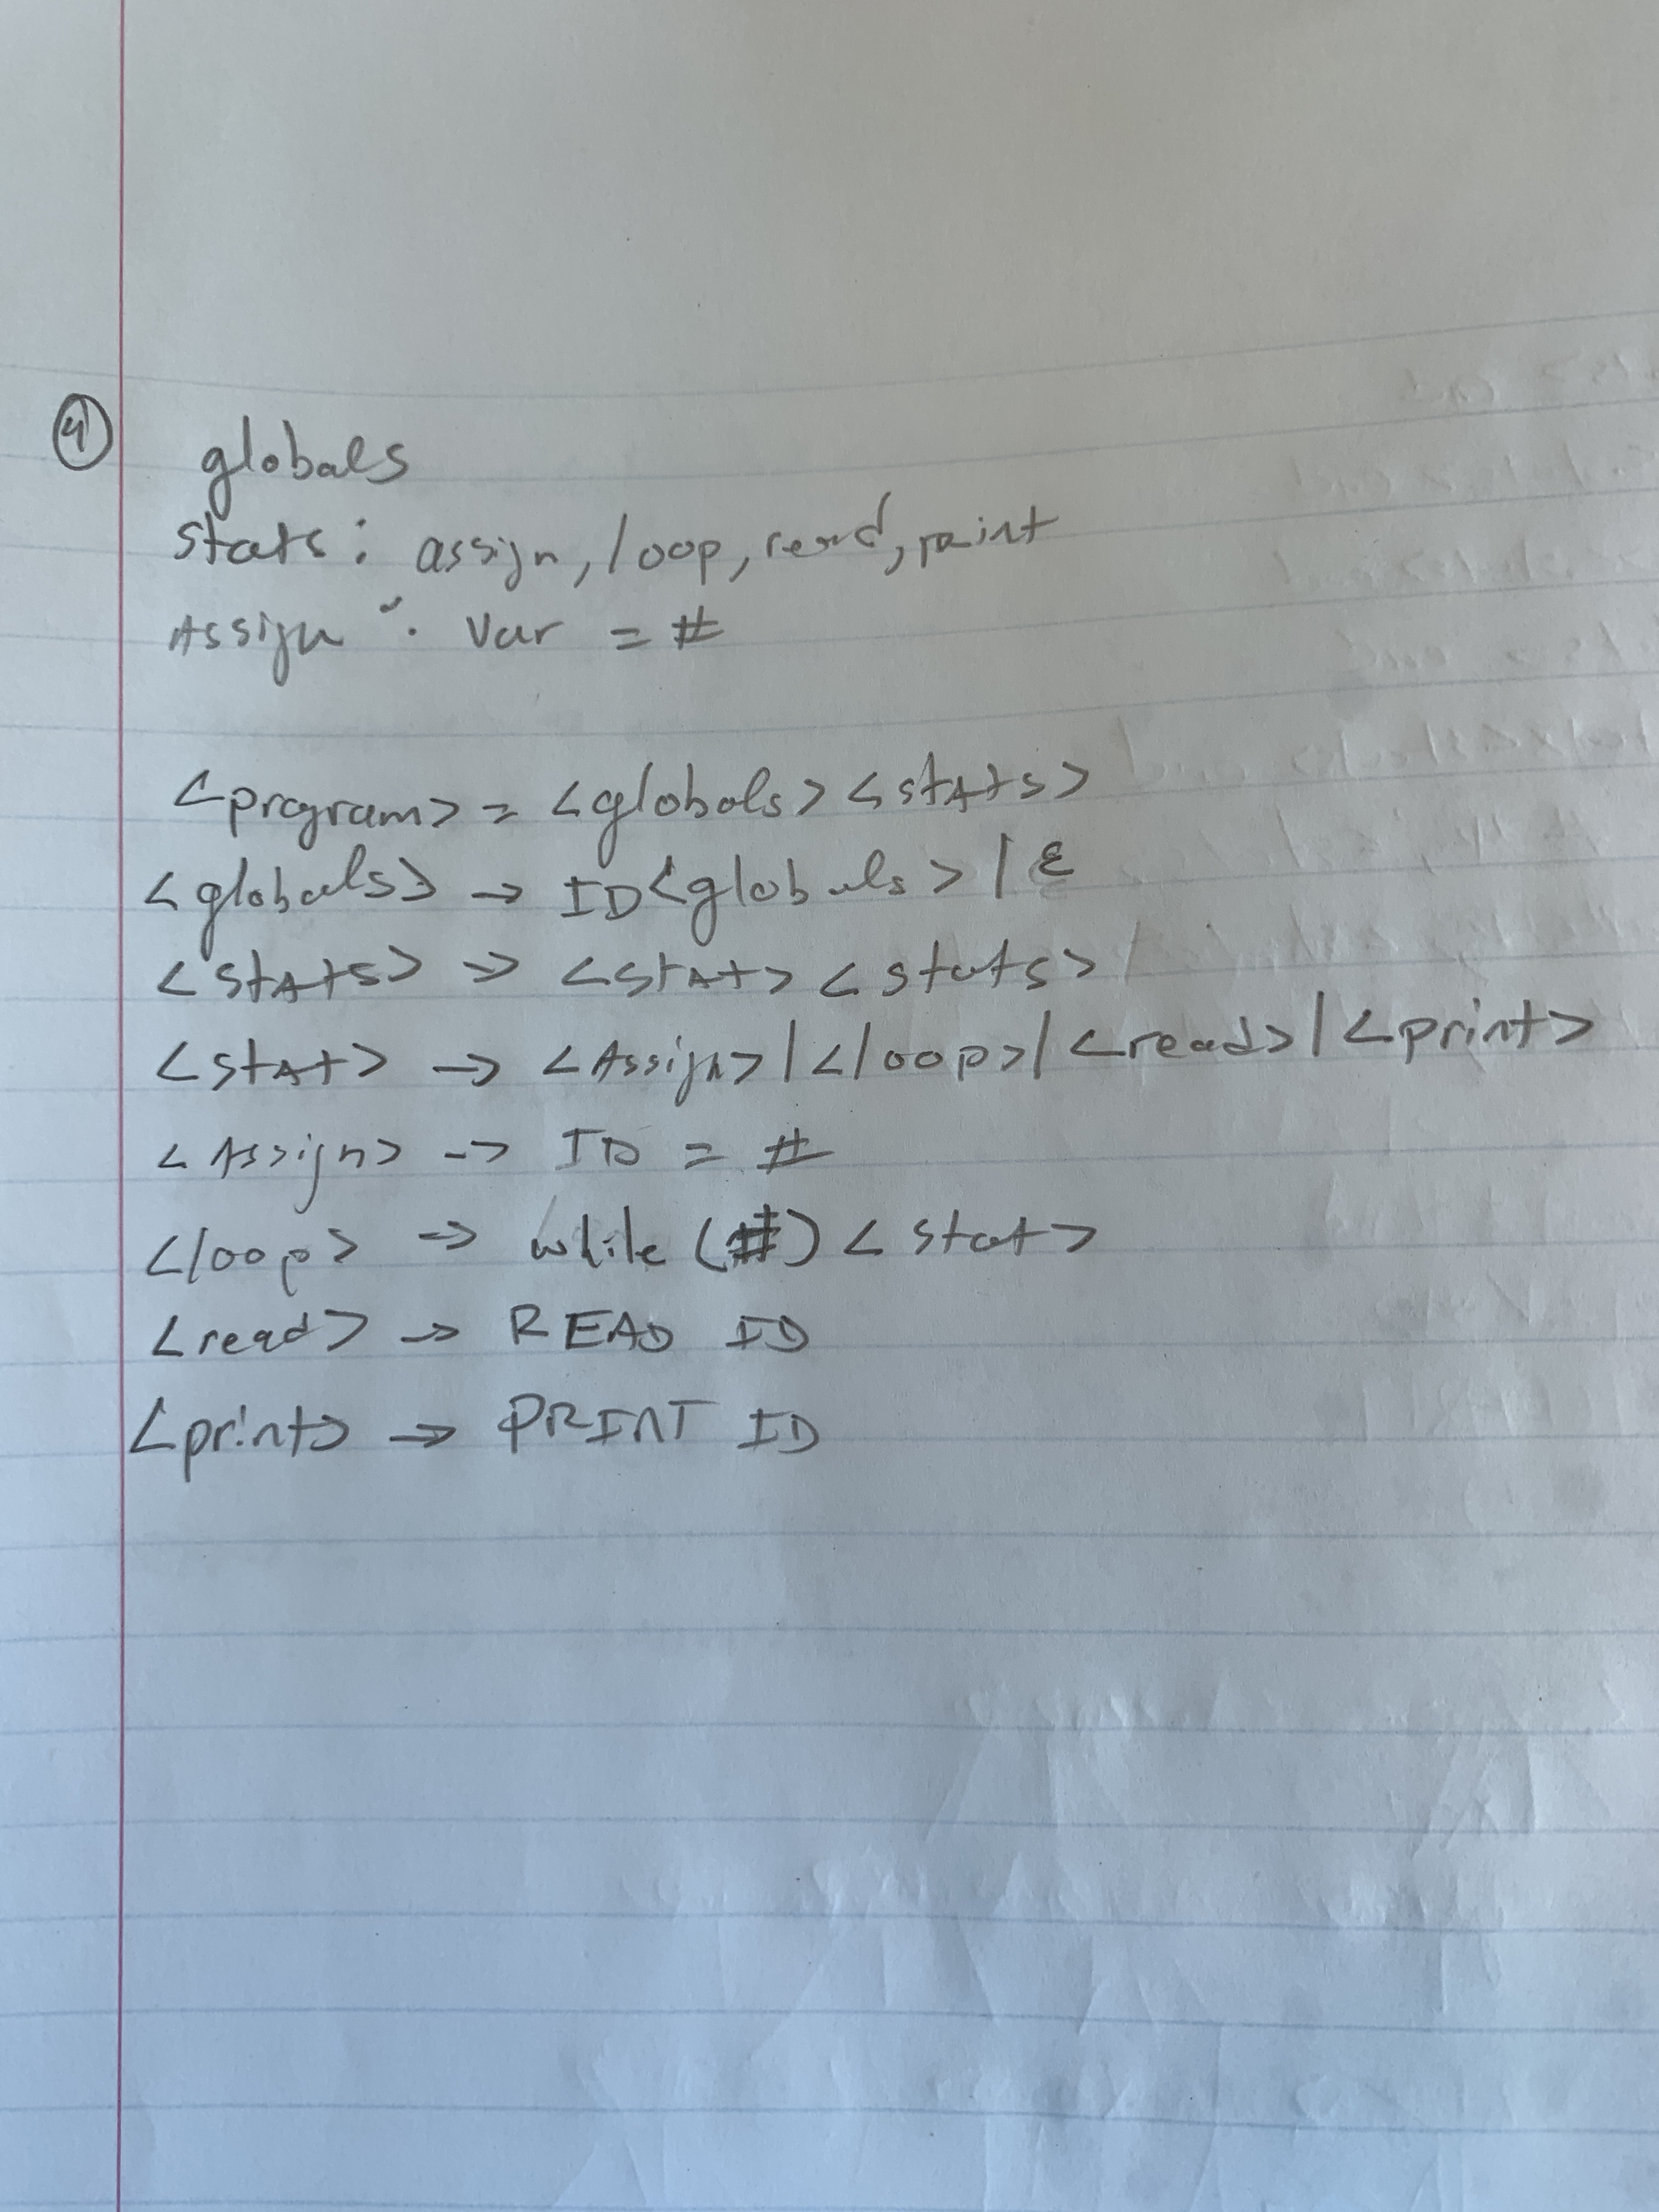 4
globals
stats: assign, loop, read, print
Assign: var = #
<program> = <globals> <stats>
<globals> → ID <globals> | ε
<stats> → <stat> <stats>
<stat> → <Assign> | <loop> | <read> | <print>
<Assign> → ID = #
<loop> → while (#) <stat>
<read> → READ ID
<print> → PRINT ID